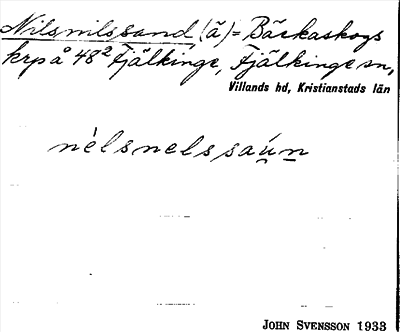 Nilsnilssand (ä) = Bäckaskogs
krp å 48² Fjälkinge, Fjälkinge sn,
Villands hd, Kristianstads län
nèlsnelssaún
JOHN SVENSSON 1933